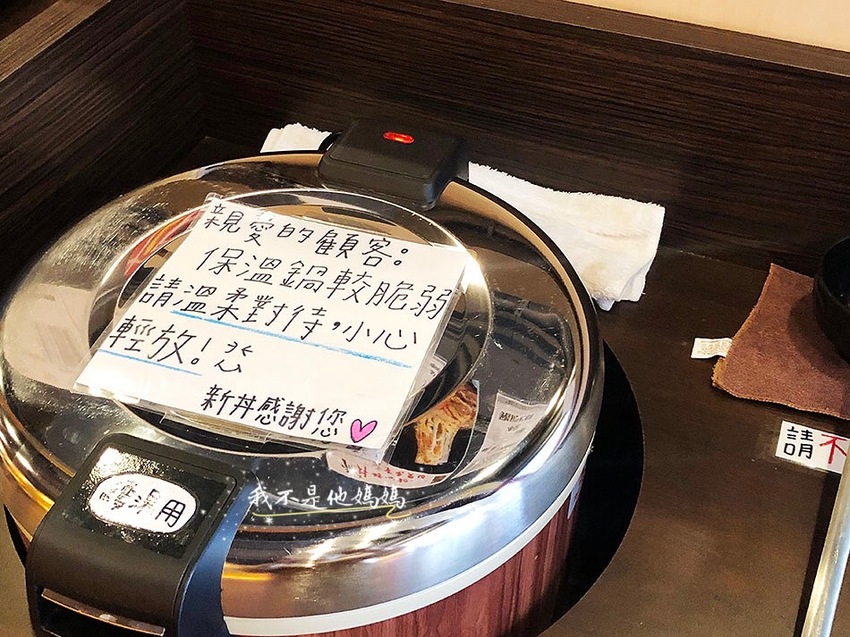 親愛的顧客:
保溫鍋較脆弱
請溫柔對待,小心
輕放!
新丼感謝您
湯用
我不是他媽媽
請不